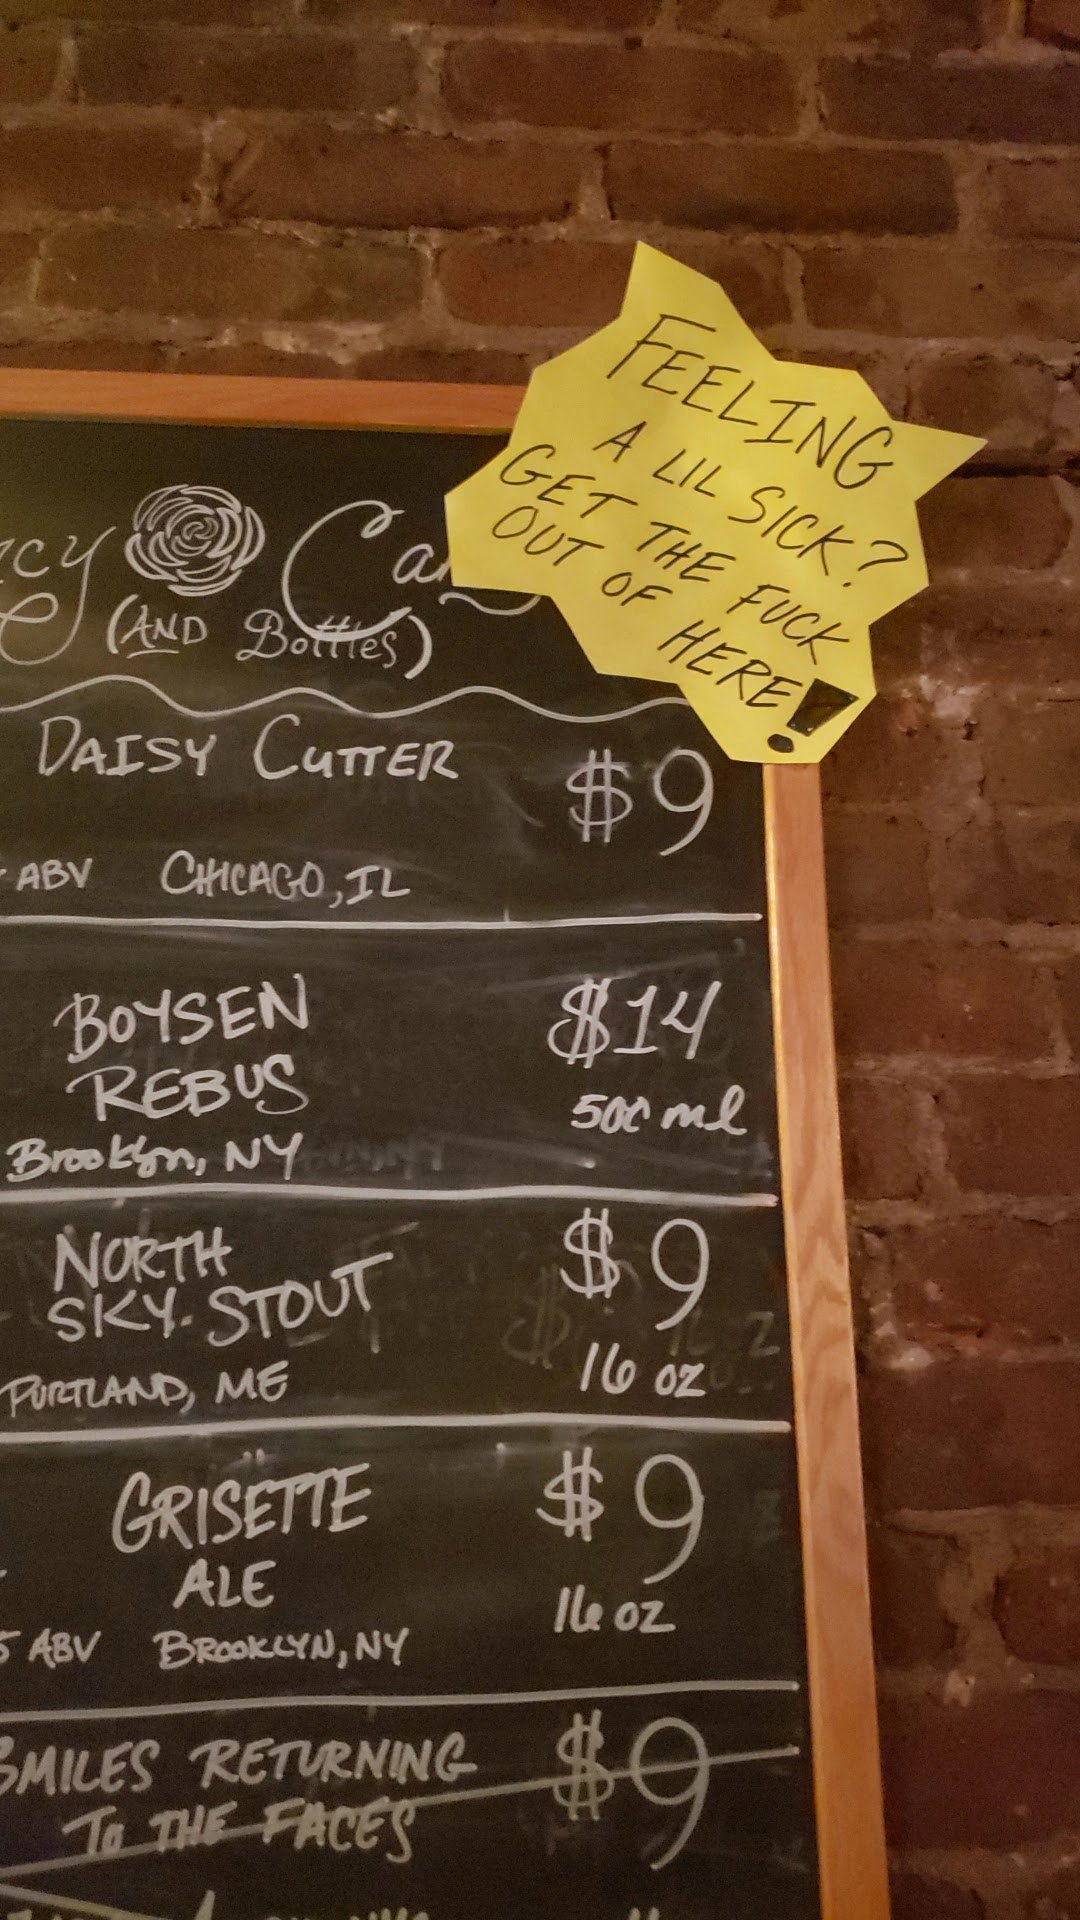 FEELING
A LIL SICK?
GET THE FUCK
OUT OF
HERE!
(AND Bottles)
DAISY CUTTER $9
ABV CHICAGO, IL
BOYSEN $14
REBUS
500 ml
Brooklyn, NY
NORTH $9
SKY STOUT
16 oz
PORTLAND, ME
GRISETTE $9
ALE
16 oz
5 ABV BROOKLYN, NY
SMILES RETURNING $9
TO THE FACES